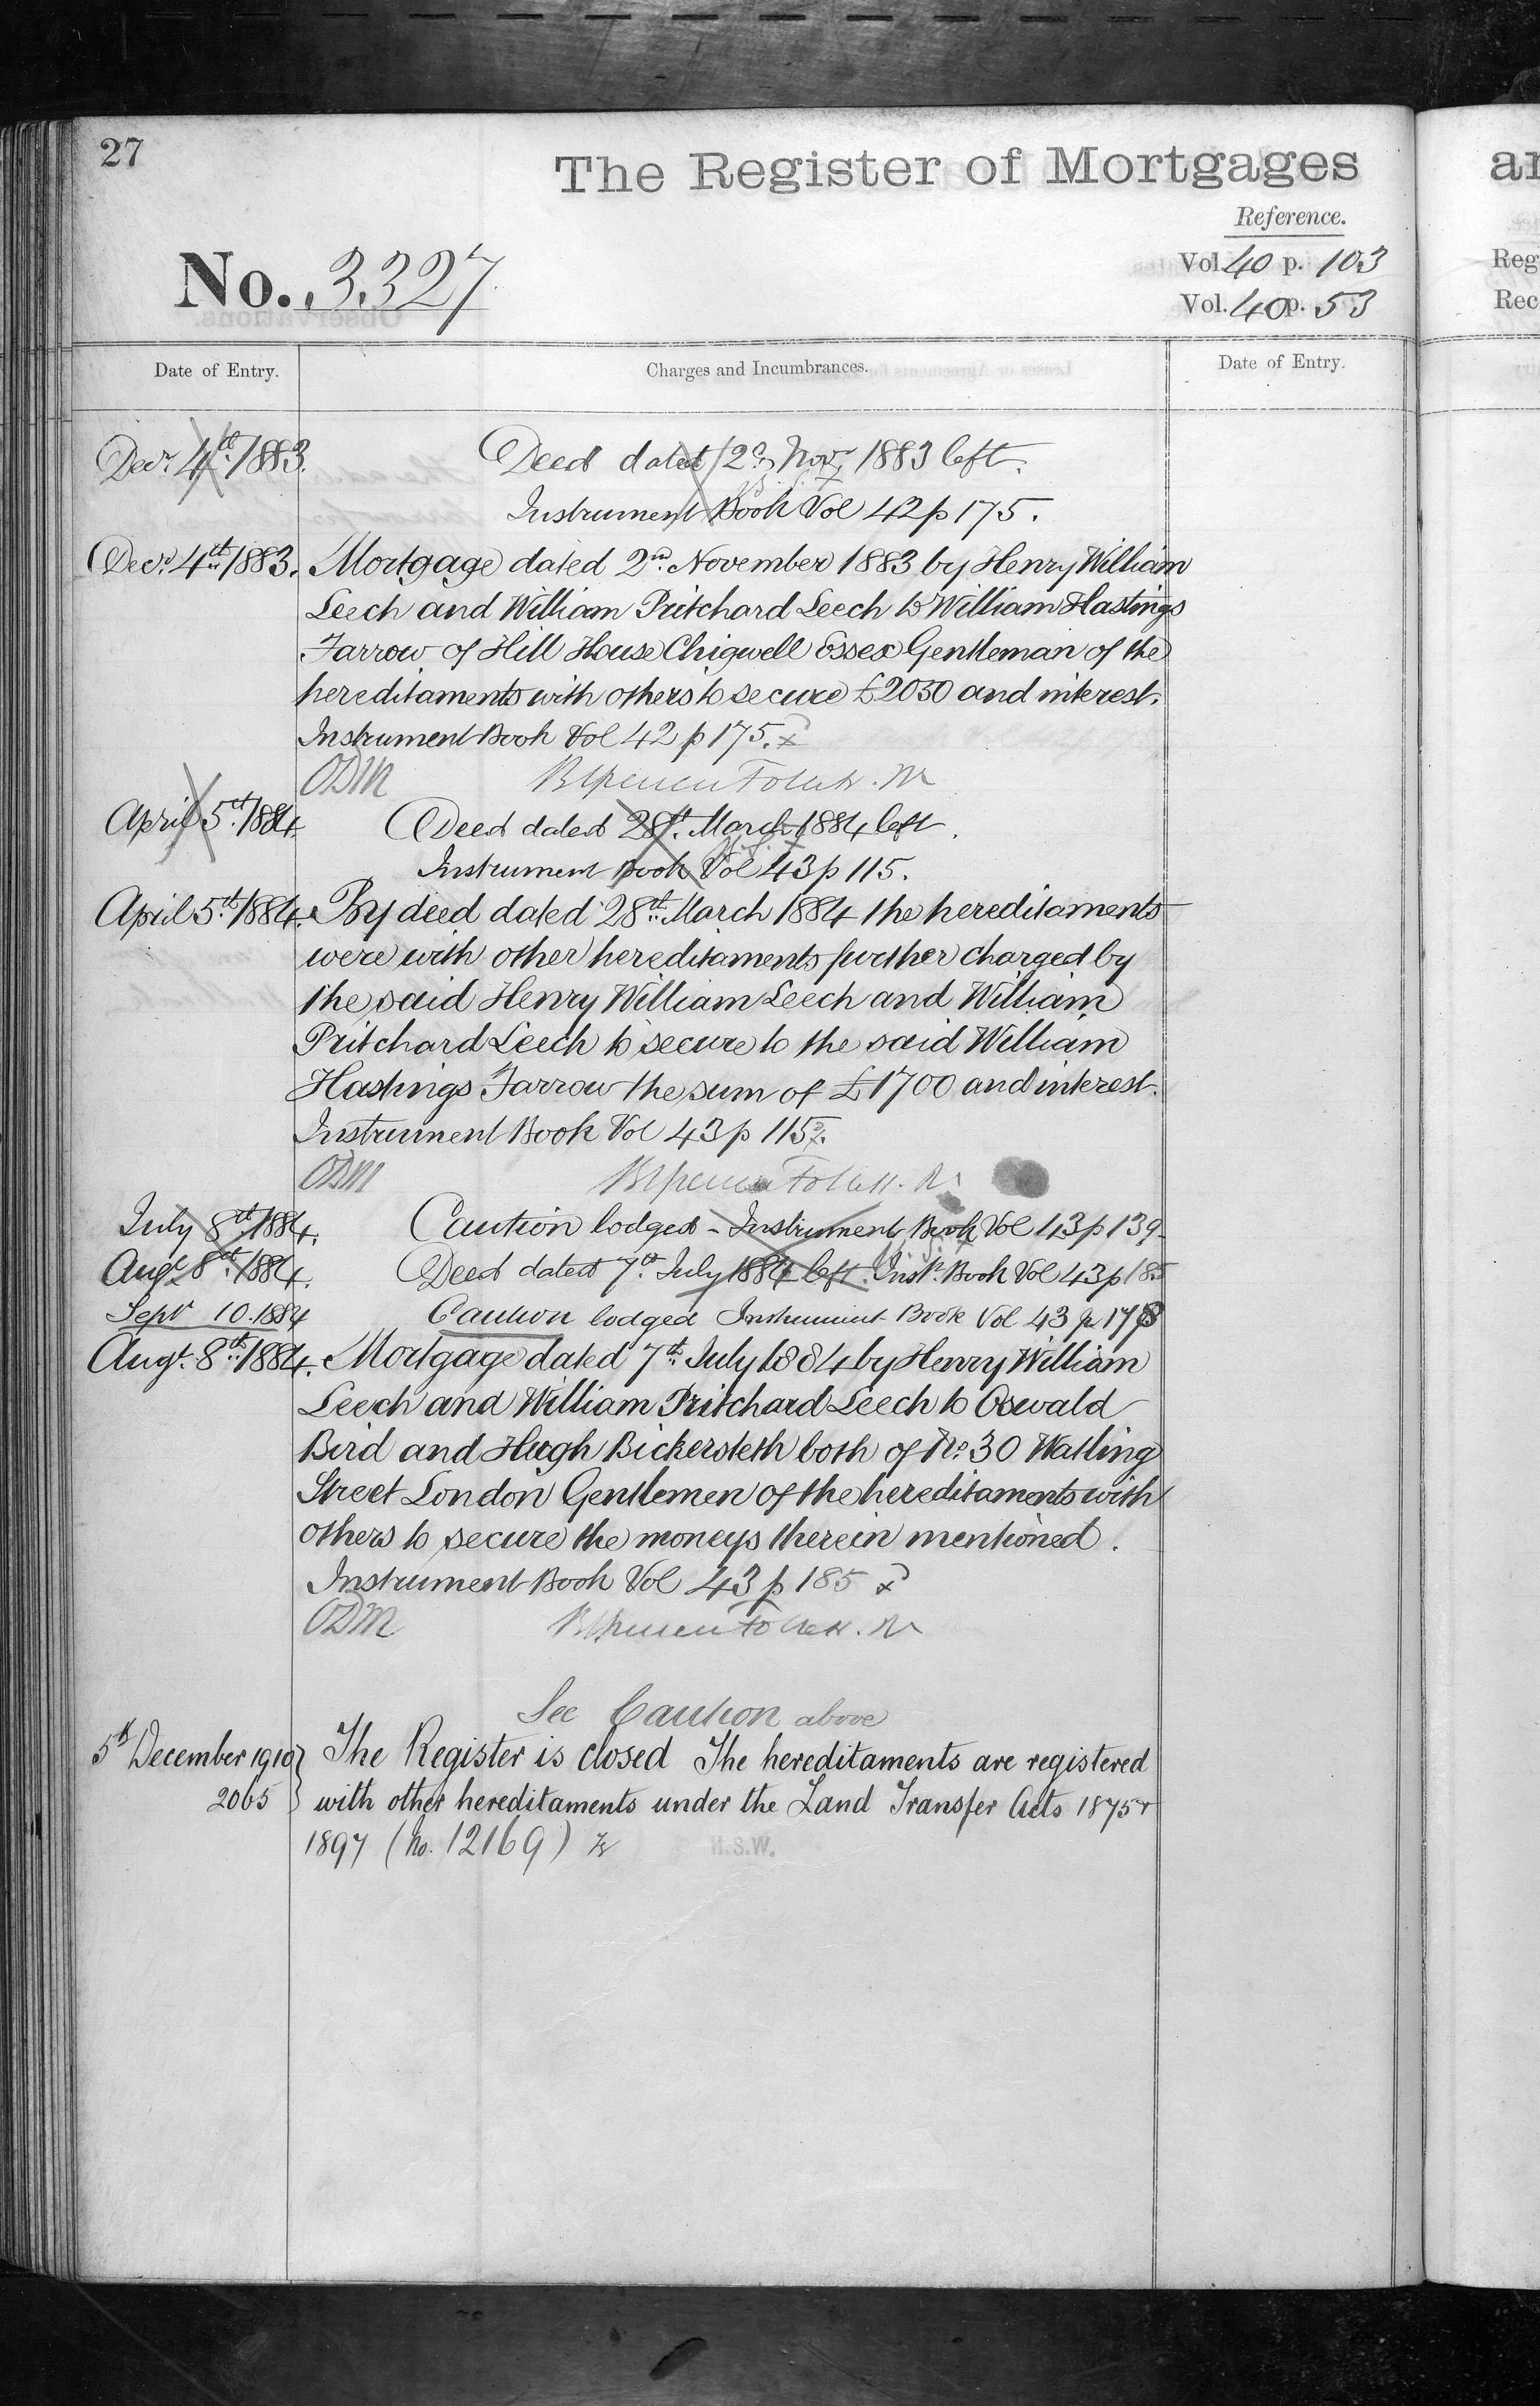 27
The Register of Mortgages
Reference.
No. 3327
Vol. 40 p. 103
Vol. 40 p. 53
Date of Entry.
Charges and Incumbrances.
Date of Entry.
Decr. 4th 1883.
Deed dated 2d Novr 1883 left.
Instrument Book Vol 42 p 175.
Decr. 4th 1883.
Mortgage dated 2nd November 1883 by Henry William
Leech and William Pritchard Leech to William Hastings
Farrow of Hill House Chigwell Essex Gentleman of the
hereditaments with others to secure £2050 and interest.
Instrument Book Vol 42 p 175.
ODM
April 5th 1884.
Deed dated 28th March 1884 left.
Instrument Book Vol 43 p 115.
April 5th 1884.
By deed dated 28th March 1884 the hereditaments
were with other hereditaments further charged by
the said Henry William Leech and William
Pritchard Leech to secure to the said William
Hastings Farrow the sum of £1700 and interest.
Instrument Book Vol 43 p 115
ODM
July 8th 1884.
Caution lodged - Instrument Book Vol 43 p 139.
Augt 8th 1884.
Deed dated 7th July 1884 left. Inst. Book Vol 43 p 185
Sept 10. 1884
Caution lodged Instrument Book Vol 43 p 178
Augt. 8th 1884.
Mortgage dated 7th July 1884 by Henry William
Leech and William Pritchard Leech to Oswald
Bird and Hugh Bickersteth both of No. 30 Watling
Street London Gentlemen of the hereditaments with
others to secure the moneys therein mentioned.
Instrument Book Vol 43 p 185
ODM
See Caution above
5th December 1910
2065
The Register is closed The hereditaments are registered
with other hereditaments under the Land Transfer Acts 1875 +
1897 (No. 12169)
H.S.W.
an
Reg
Rec